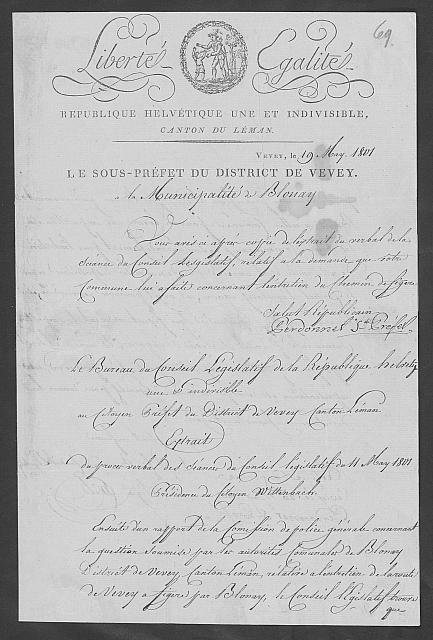 69.
Liberté Egalité
REPUBLIQUE HELVÉTIQUE UNE ET INDIVISIBLE,
CANTON DU LÉMAN.
VEVEY, le 19 May 1801
LE SOUS-PRÉFET DU DISTRICT DE VEVEY.
a la Municipalité de Blonay
Vous avés ci après copie de l'extrait du verbal de la
Séance du Conseil Législatif, relatif a la demande que votre
Commune lui a faite concernant l'entretien du Chemin de
Salut Républicain
Perdonnet
Le Bureau du Conseil Législatif de la République helvetiq
une & indivisible
au Citoyen Préfet du District de Vevey Canton Léman
Extrait
du procès verbal des séances du Conseil législatif du 11 May 1801
Présidence du Citoyen Wittenbach
Ensuite d'un rapport de la Comission de police générale concernant
la question soumise par les autorités Comunales de Blonay
District de Vevey Canton Léman, rélative a l'entretien de la route
de Vevey a par Blonay, le Conseil législatif trouve
que